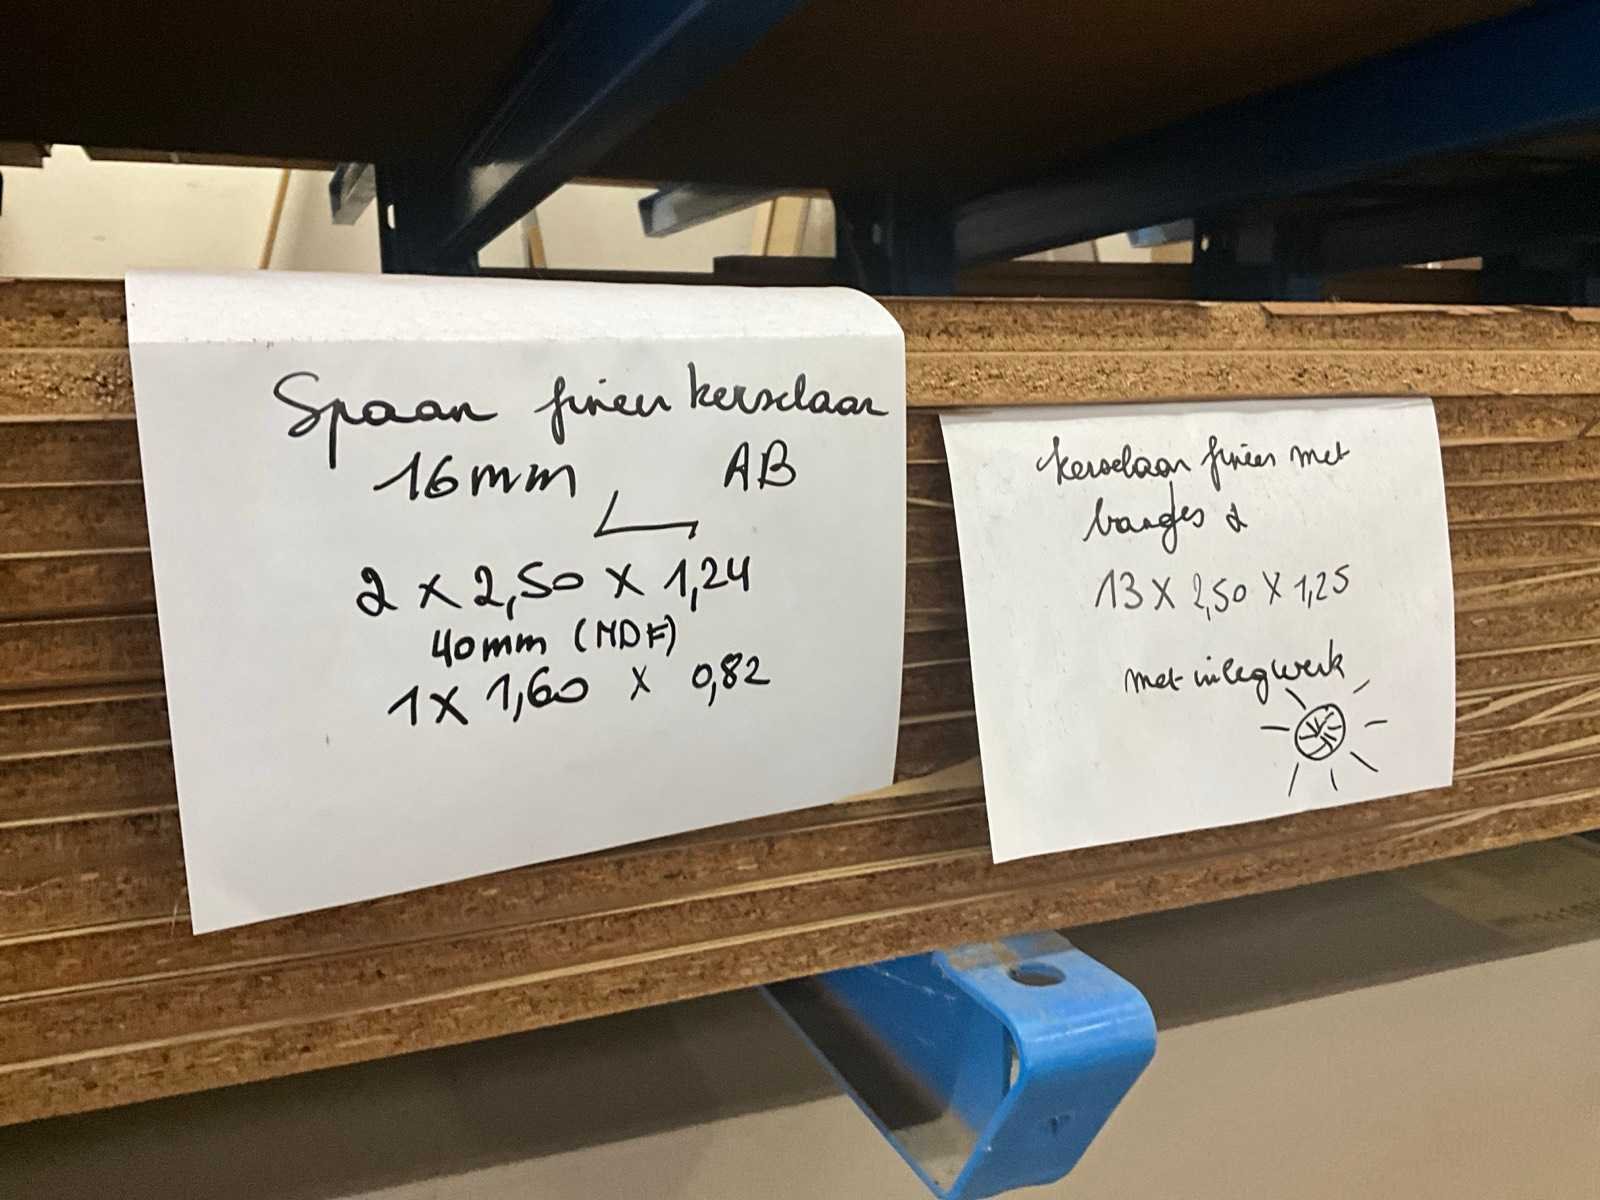 Spaan fineer kerselaar
16mm AB
2 x 2,50 x 1,24
40mm (MDF)
1 x 1,60 x 0,82
kerselaar fineer met
2
13 x 2,50 x 1,25
met inlegwerk